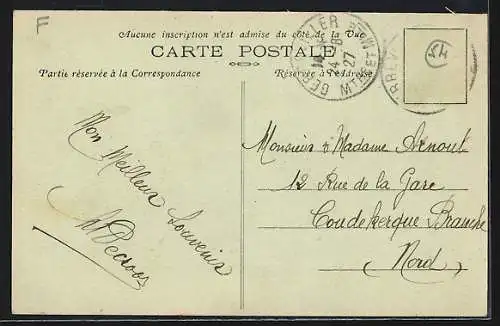 F
Aucune inscription n'est admise du côté de la Vue
CARTE POSTALE
Partie réservée à la Correspondance
Réservée à l'Adresse
Mon Meilleur Souvenir
Monsieur & Madame Arnout
12 Rue de la Gare
Coudekerque Branche
Nord